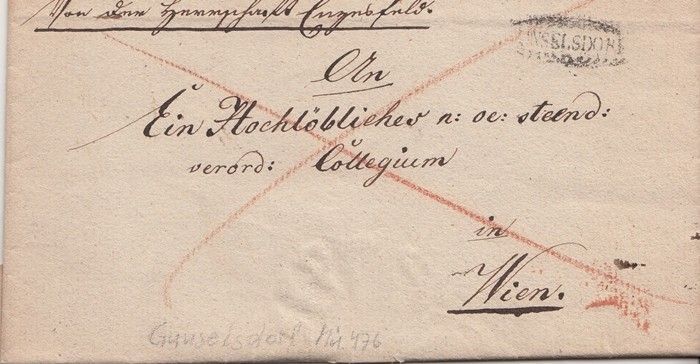 Von der Herrschaft Enzesfeld.
NSELSDORF
An
Ein Hochlöbliches n: oe: steend:
verord: Collegium
in
Wien.
Gunselsdorf Mü 476